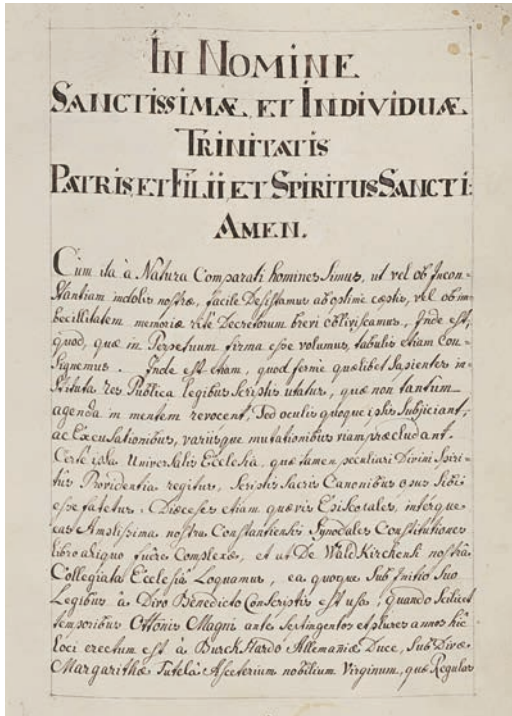 IN NOMINE
SANCTISSIMÆ ET INDIVIDUÆ
TRINITATIS
PATRIS, ET FILII, ET SPIRITUS SANCTI:
AMEN.
Cùm ita à Natura Comparati homines Simus, ut vel ob Incon-
Stantiam indolis nostræ, facile Desistamus ab optimè cæptis, vel ob im-
becillitatem memoriæ ritè Decretorum brevi obliviscamur, Inde est,
quod, quæ in Perpetuum firma esse volumus, tabulis etiam Con-
Signemus. Inde est etiam, quod fermè quælibet Sapienter in-
Stituta res Publica legibus Scriptis utatur, quæ non tantum
agenda in mentem revocent, Sed oculis quoque ipsis Subjiciant,
ac Excusationibus, variisque mutationibus viam præcludant.
Certè ipsa Universalis Ecclesia, quæ tamen peculiari Divini Spiri-
tûs Providentia regitur, Scriptis Sacris Canonibus opus Sibi
esse fatetur. Diœceses etiam quævis Episcopales, intérque
eas Amplissima nostra Constantiensis Synodales Constitutiones
libro aliquo fuêre Complexæ, et ut De WaldKirchensi nostrâ
Collegiatâ Ecclesiâ Loquamur, ea quoque Sub Initio Suo
Legibus à Divo Benedicto Conscriptis est usa, quando Scilicet
temporibus Ottonis Magni ante Septingentos et plures annos hîc
Loci erectum est à BurckHardo Allemaniæ Duce, Sub Divæ
Margarithæ Tutelâ Asceterium nobilium Virginum, quæ Regulas